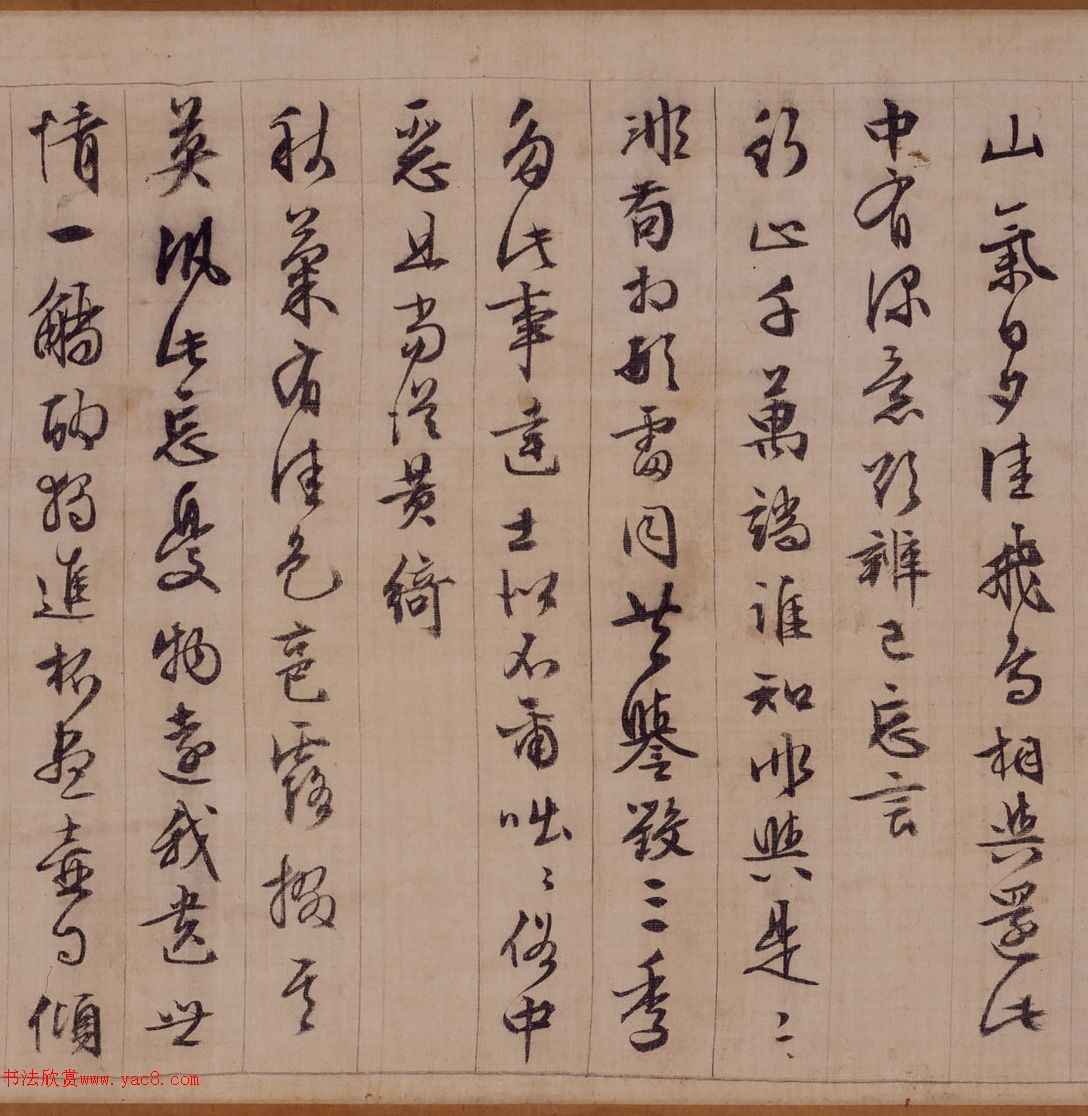 山氣日夕佳飛鳥相與還此
中有深意欲辨已忘言
行止千萬端誰知非與是〻
非苟相形雷同共譽毀三季
多此事達士似不爾咄〻俗中
惡且當從黃綺
秋菊有佳色裛露掇其
英汎此忘憂物遠我遺世
情一觴酌獨進杯盡壺自傾
书法欣赏www.yac8.com